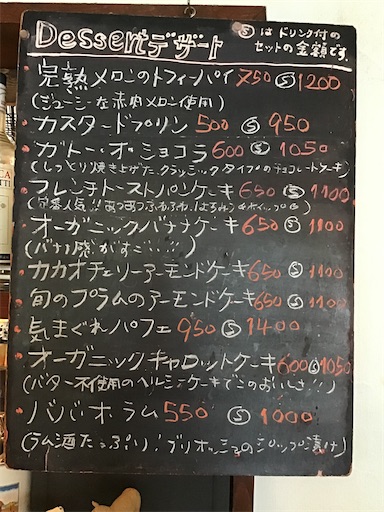 Dessert デザート
Ⓢ は ドリンク付の
セットの金額です。
完熟メロンのトフィーパイ 750 Ⓢ 1200
(ジューシーな赤肉メロン使用)
カスタードプリン 500 Ⓢ 950
ガトー・オ・ショコラ 600 Ⓢ 1050
(しっとり焼き上げたクラッシックタイプのチョコレートケーキ)
フレンチトーストパンケーキ 650 Ⓢ 1100
オーガニックバナナケーキ 650 Ⓢ 1100
(バナナ感がすごい!!)
カカオチェリーアーモンドケーキ 650 Ⓢ 1100
旬のプラムのアーモンドケーキ 650 Ⓢ 1100
気まぐれパフェ 950 Ⓢ 1400
オーガニックキャロットケーキ 600 Ⓢ 1050
(バター不使用のヘルシーケーキでこのおいしさ!!)
ババ・オ・ラム 550 Ⓢ 1000
(ラム酒たっぷり!ブリオッシュのシロップ漬け)